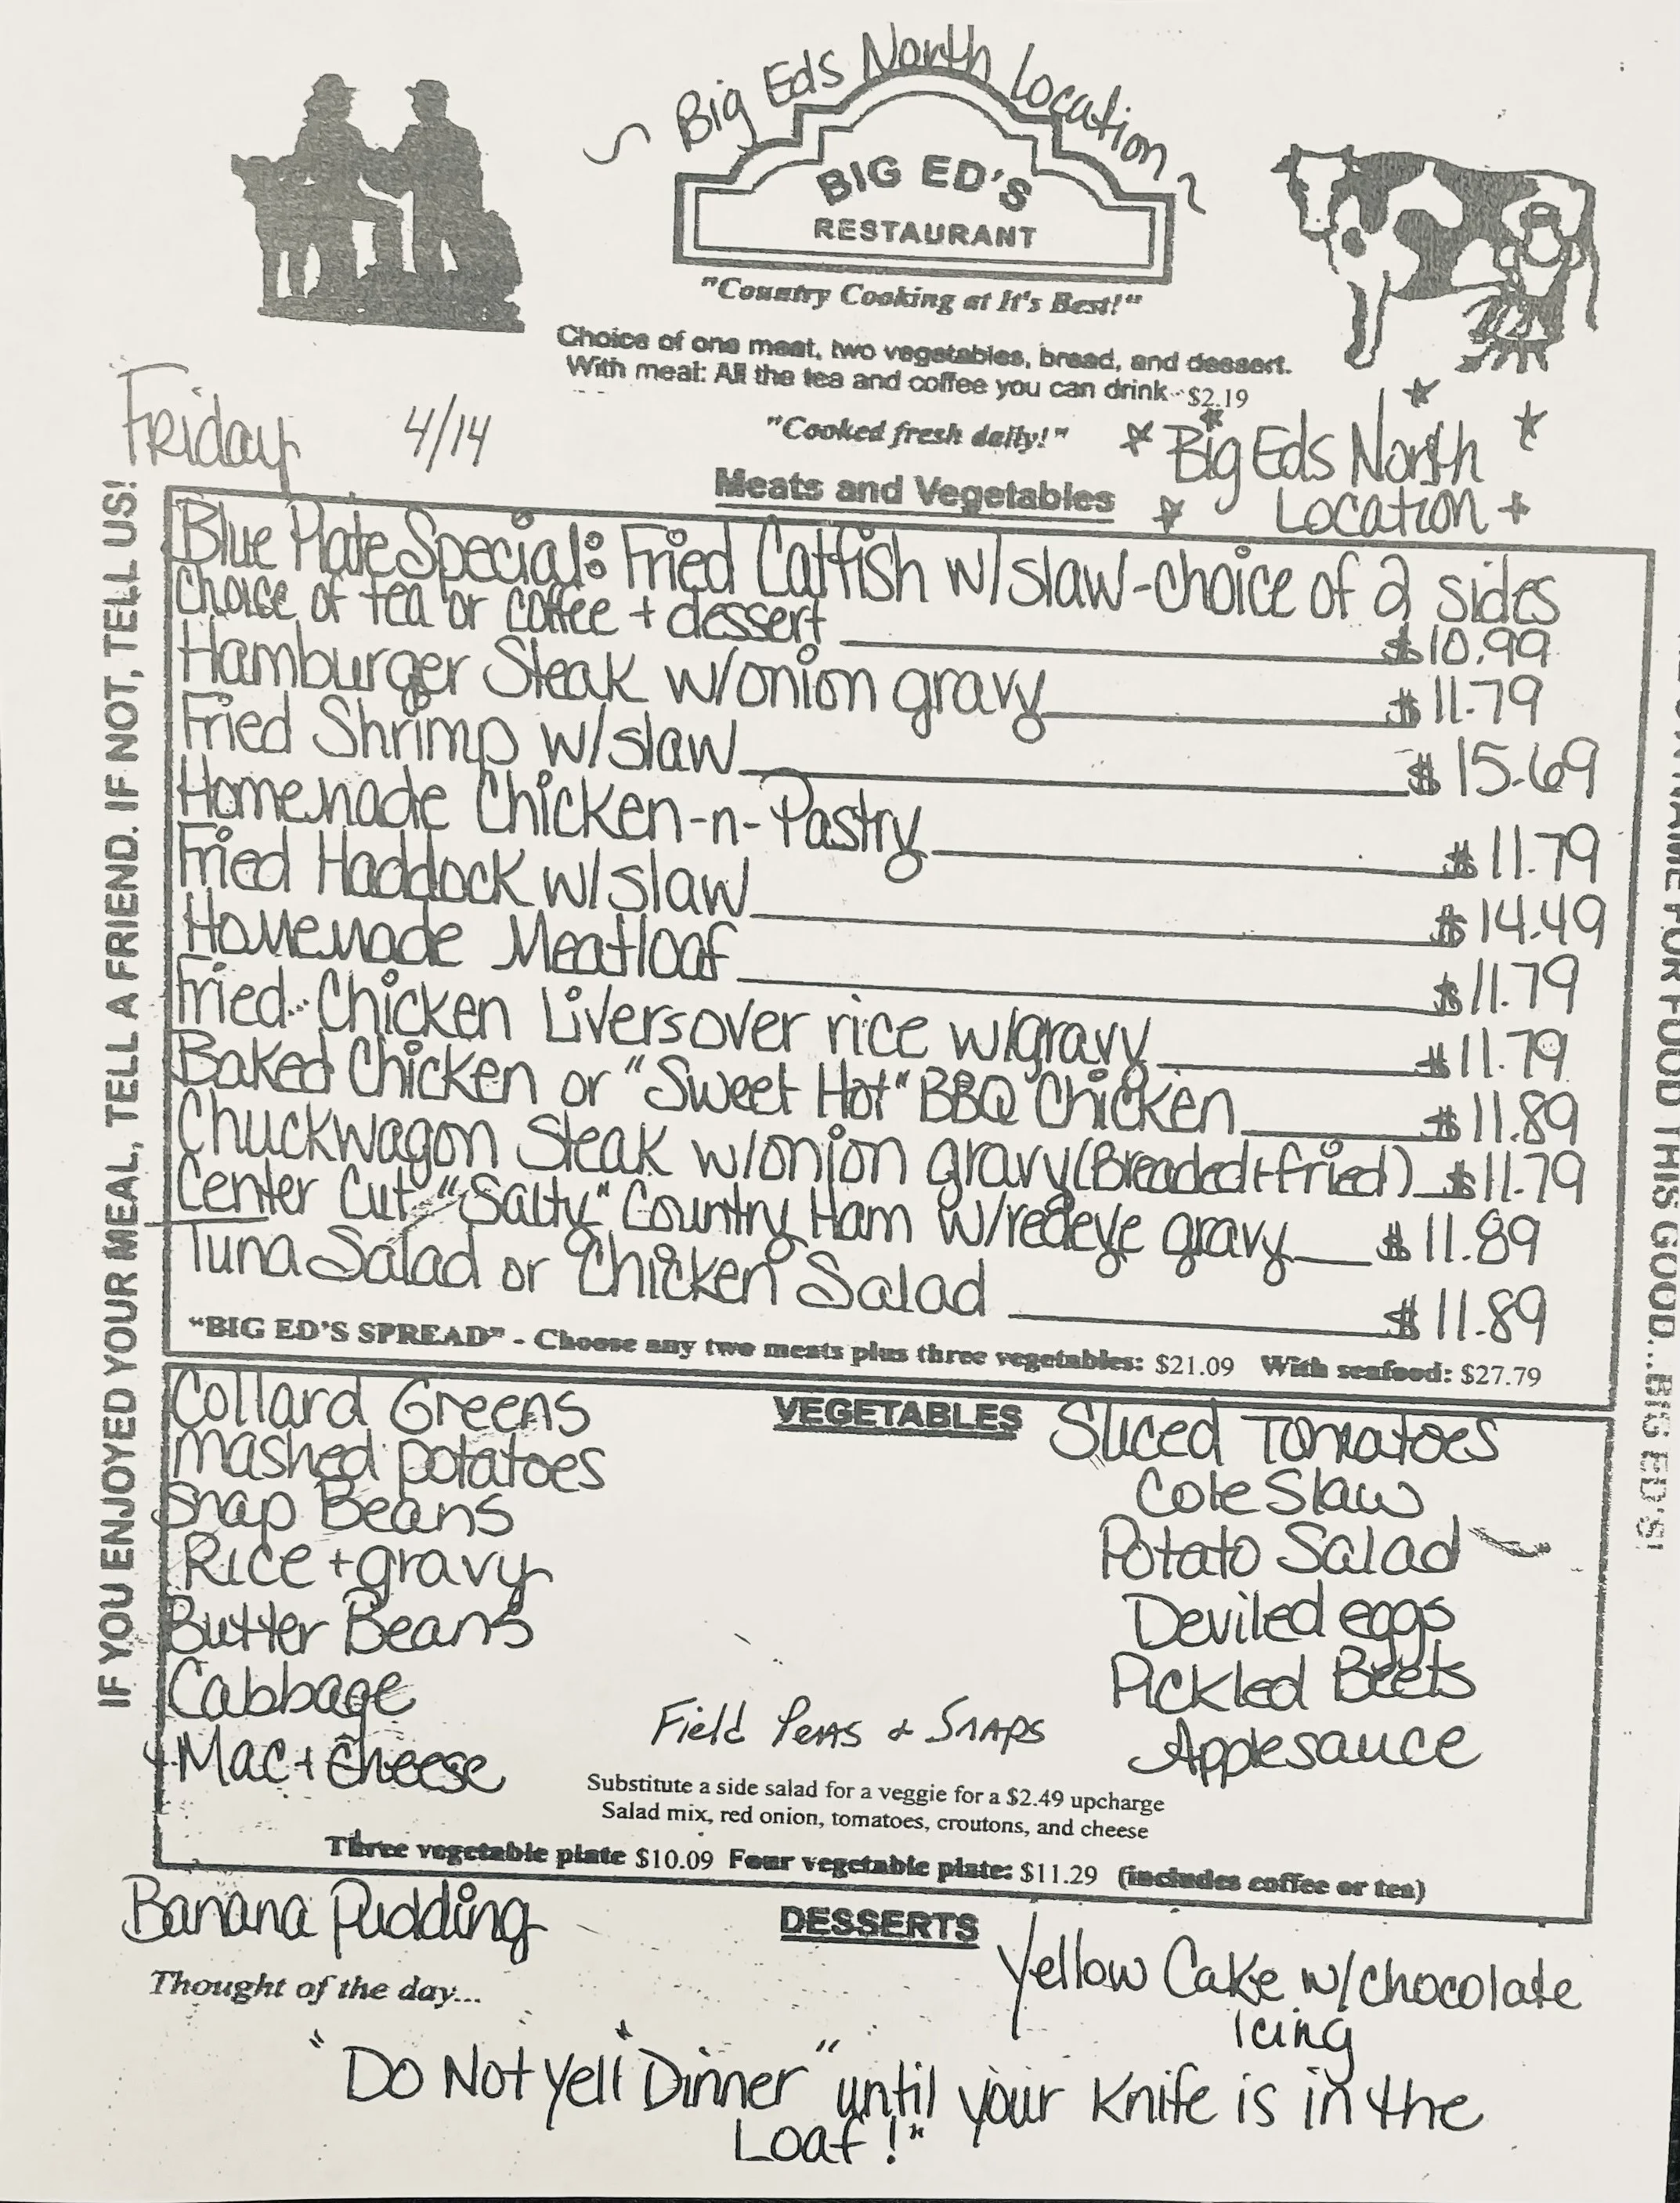 ~ Big Eds North Location ~
BIG ED'S
RESTAURANT
"Country Cooking at It's Best!"
Choice of one meat, two vegetables, bread, and dessert.
With meal: All the tea and coffee you can drink - $2.19
"Cooked fresh daily!"
Friday 4/14
Big Eds North
Location
Meats and Vegetables
Blue Plate Special: Fried Catfish w/slaw-choice of 2 sides
choice of tea or coffee + dessert $10.99
Hamburger Steak w/onion gravy $11.79
Fried Shrimp w/slaw $15.69
Homemade Chicken-n-Pastry $11.79
Fried Haddock w/slaw $14.49
Homemade Meatloaf $11.79
Fried Chicken Livers over rice w/gravy $11.79
Baked Chicken or "Sweet Hot" BBQ Chicken $11.89
Chuckwagon Steak w/onion gravy (Breaded+fried) $11.79
Center Cut "Salty" Country Ham w/redeye gravy $11.89
Tuna Salad or Chicken Salad $11.89
"BIG ED'S SPREAD" - Choose any two meats plus three vegetables: $21.09 With seafood: $27.79
VEGETABLES
Collard Greens
mashed potatoes
Snap Beans
Rice + gravy
Butter Beans
Cabbage
Mac + cheese
Field Peas & Snaps
Sliced Tomatoes
Cole Slaw
Potato Salad
Deviled eggs
Pickled Beets
Applesauce
Substitute a side salad for a veggie for a $2.49 upcharge
Salad mix, red onion, tomatoes, croutons, and cheese
Three vegetable plate $10.09 Four vegetable plate: $11.29 (includes coffee or tea)
DESSERTS
Banana Pudding
Yellow Cake w/chocolate
Icing
Thought of the day...
"Do Not Yell "Dinner" until your Knife is in the
Loaf!"
IF YOU ENJOYED YOUR MEAL, TELL A FRIEND. IF NOT, TELL US!
FOR FOOD THIS GOOD...BIG ED'S!